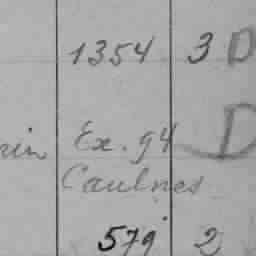 1354 3 D
rin Ex. 94 D
Caulnes
579 2